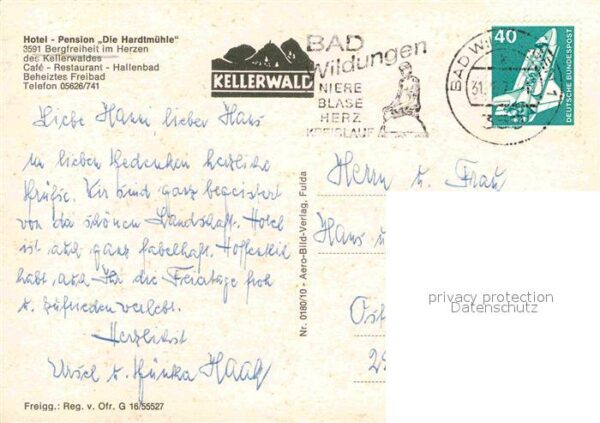 Hotel - Pension „Die Hardtmühle"
3591 Bergfreiheit im Herzen
des Kellerwaldes
Café - Restaurant - Hallenbad
Beheiztes Freibad
Telefon 05626/741
KELLERWALD
BAD
Wildungen
NIERE
BLASE
HERZ
KREISLAUF
BAD W
31.
40
DEUTSCHE BUNDESPOST
Liebe Hanni, lieber Hans
In lieben Gedenken herzliche
Grüße. Wir sind ganz begeistert
von der schönen Landschaft. Hotel
ist auch ganz fabelhaft. Hoffentlich
habt auch Ihr die Freitage froh
u. zufrieden verlebt.
Herzlichst
Ursel u. Günter Haag
Freigg.: Reg. v. Ofr. G 16/55527
Nr. 0180/10 - Aero-Bild-Verlag, Fulda
Herrn u. Frau
Hans u
Ost
29
privacy protection
Datenschutz